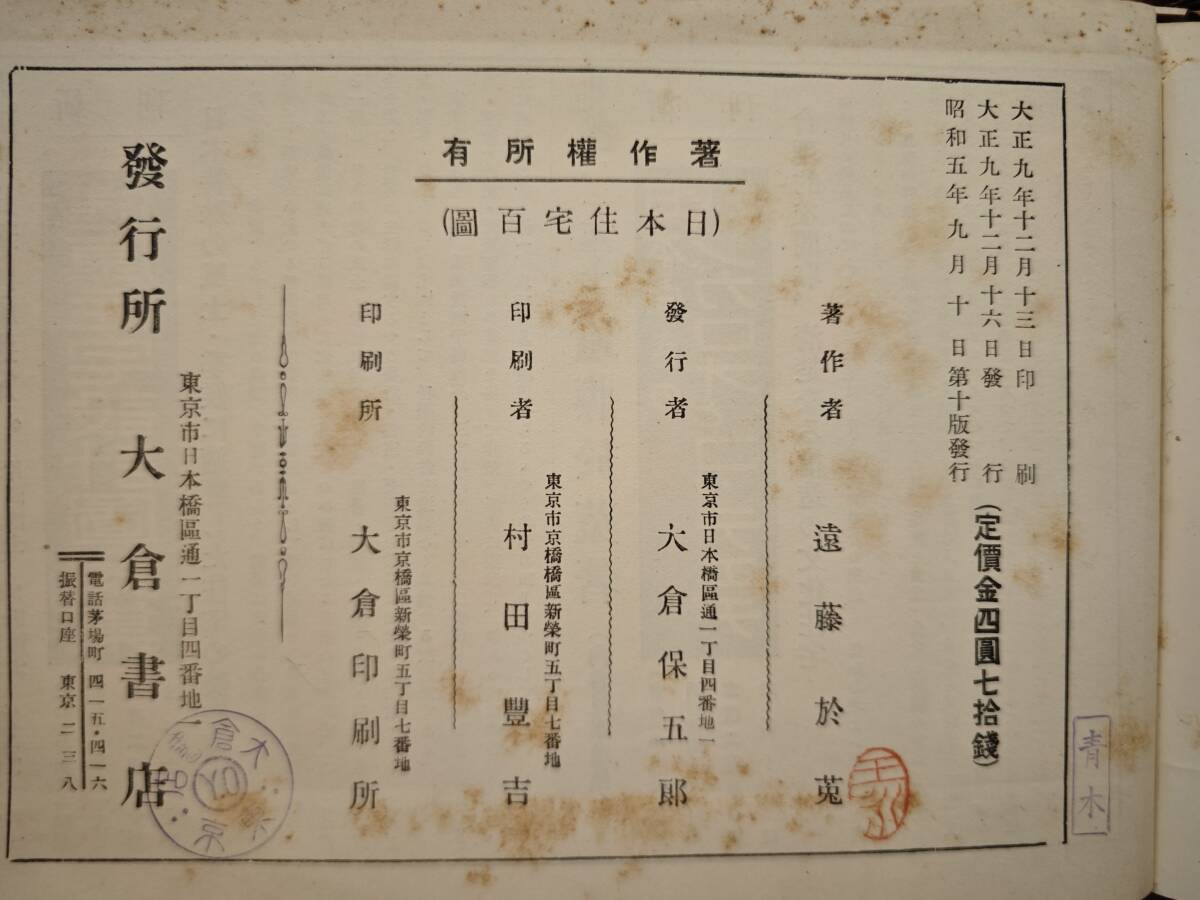 大正九年十二月十三日印刷
大正九年十二月十六日發行
昭和五年九月十日第十版發行
(定價金四圓七拾錢)
著作權所有
(日本住宅百圖)
著作者 遠藤於菟
發行者 東京市日本橋區通一丁目四番地
大倉保五郎
印刷者 東京市京橋區新榮町五丁目七番地
村田豐吉
印刷所 東京市京橋區新榮町五丁目七番地
大倉印刷所
東京市日本橋區通一丁目四番地
發行所 大倉書店
電話茅場町 四一五・四一六
振替口座 東京二三八
青木
大倉
東京